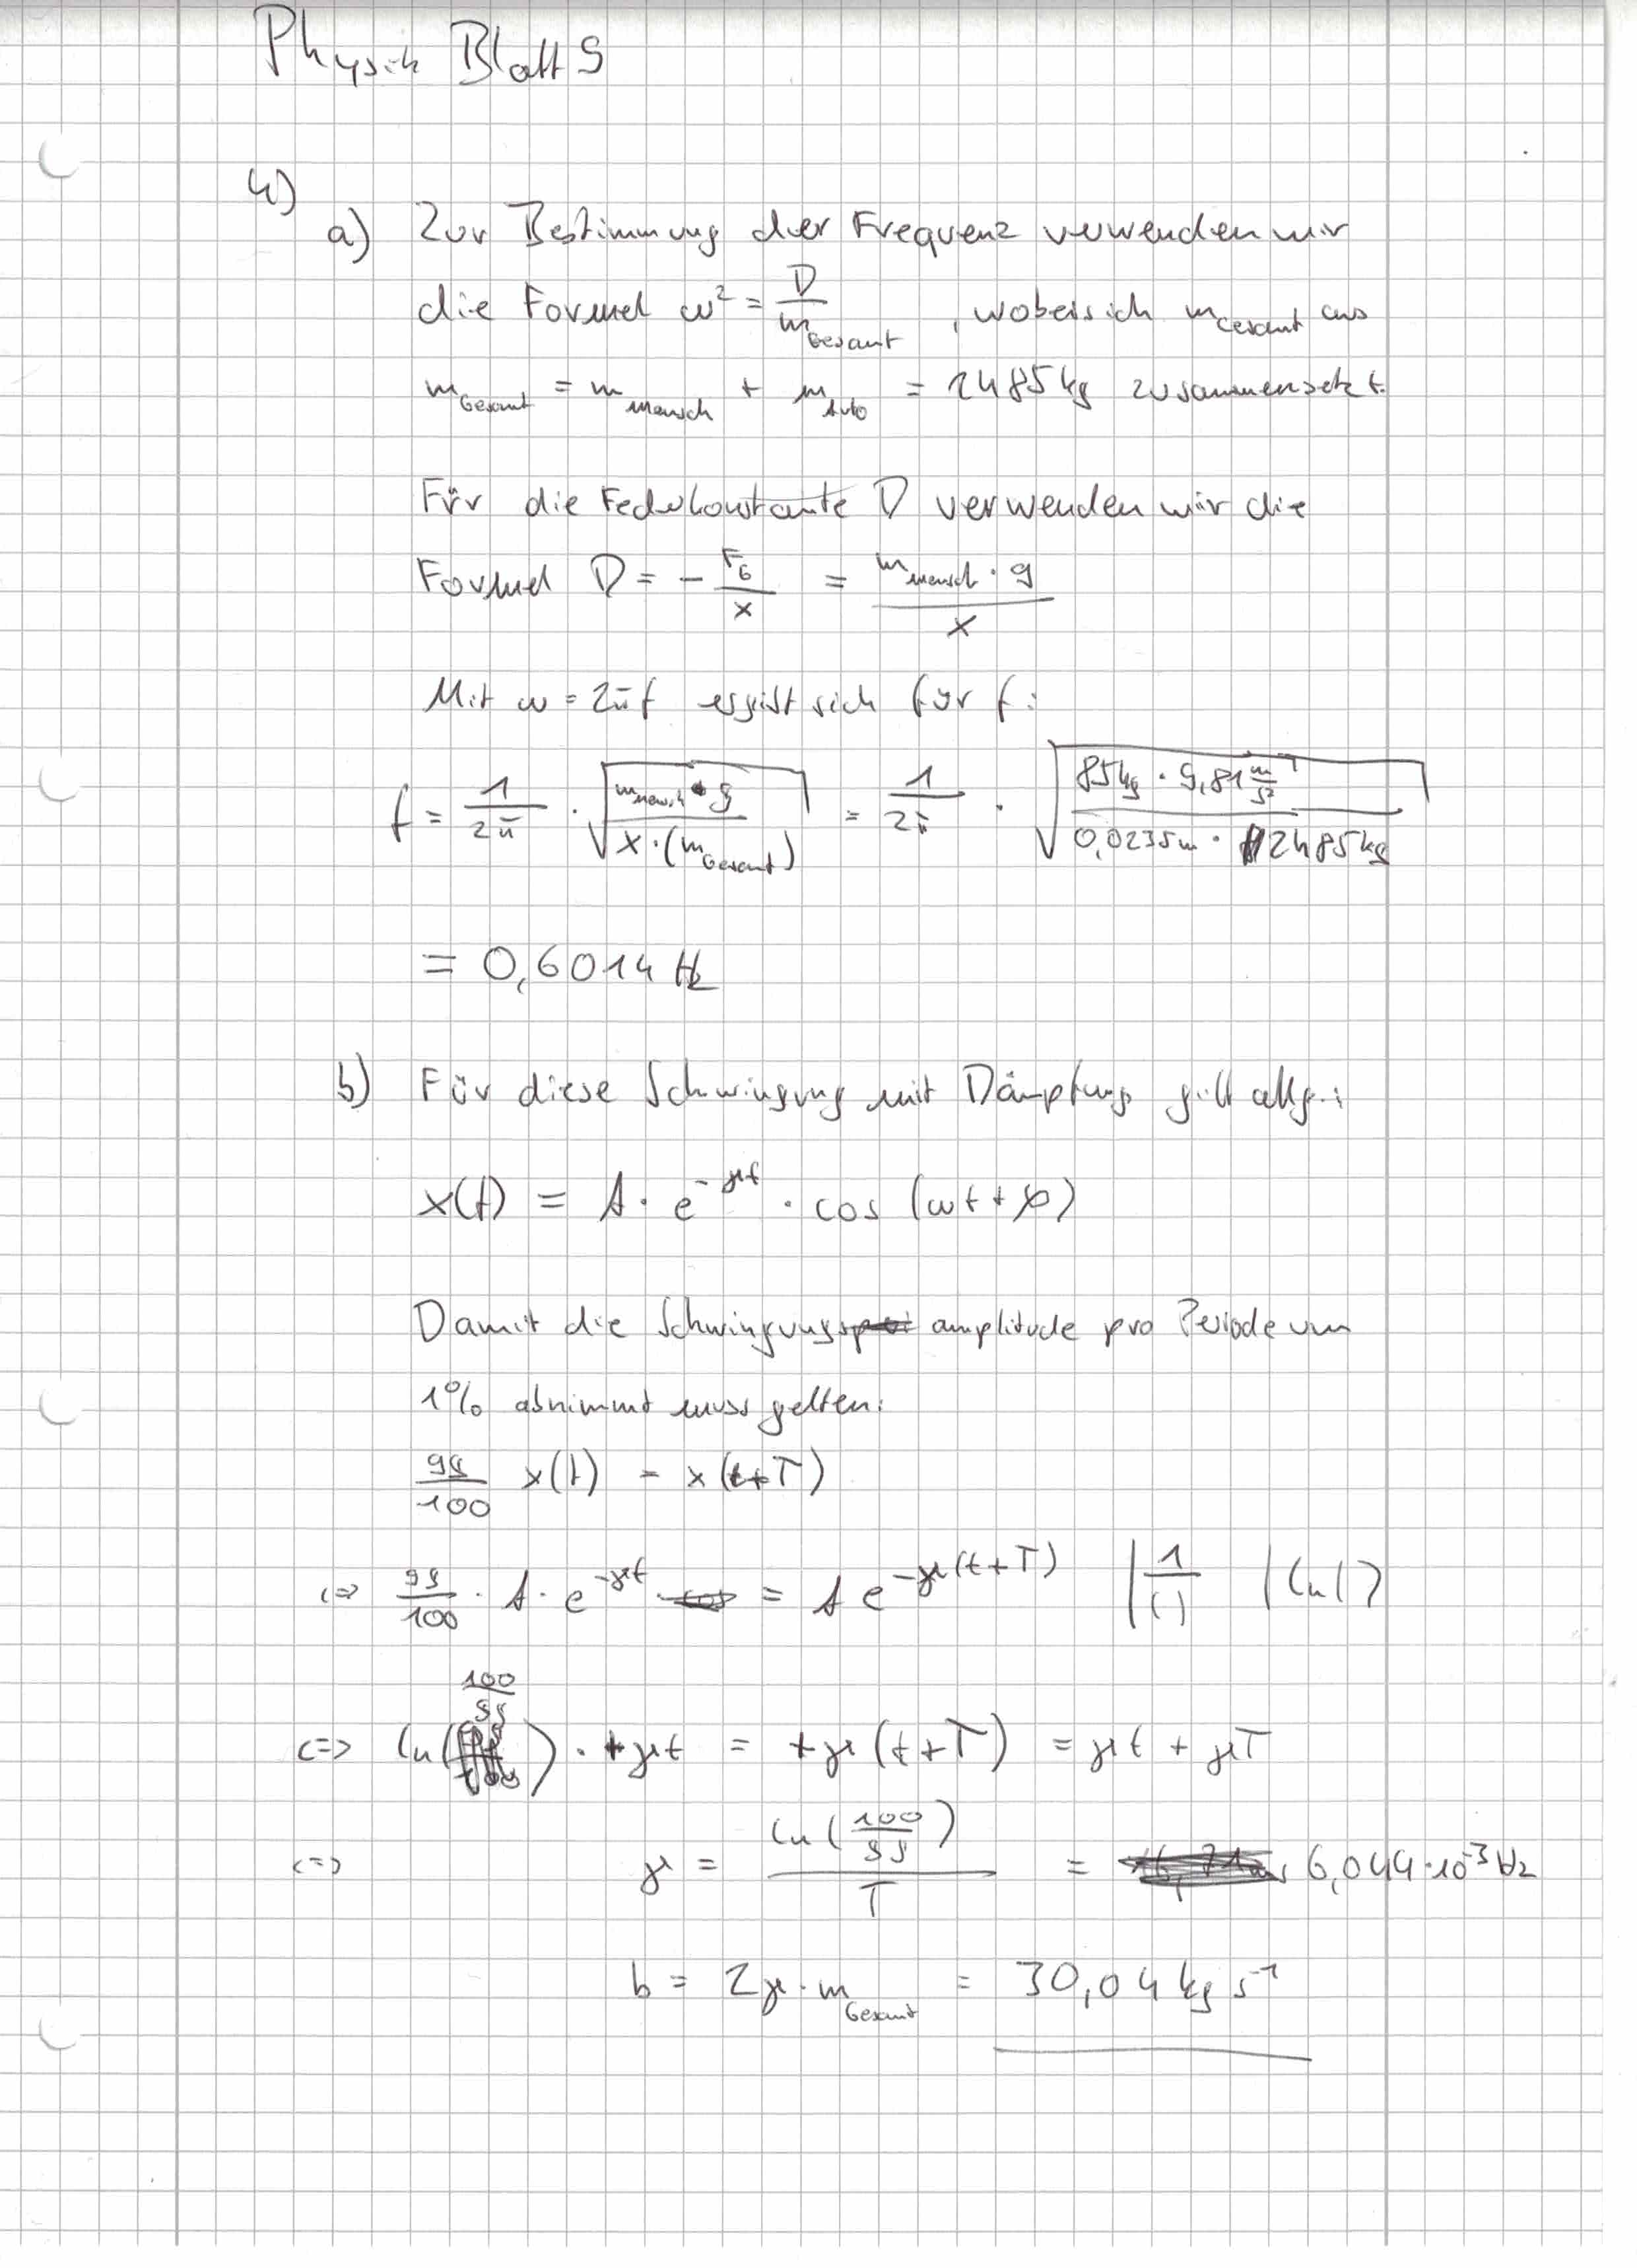 Physik Blatt 9
4)
a) Zur Bestimmung der Frequenz verwenden wir
die Formel ω² = D / m_Gesamt , wobei sich m_Gesamt aus
m_Gesamt = m_Mensch + m_Auto = 2485 kg zusammensetzt.
Für die Federkonstante D verwenden wir die
Formel D = - F_G / x = m_Mensch · g / x
Mit ω = 2πf ergibt sich für f:
f = 1/2π · √(m_Mensch · g / x · (m_Gesamt)) = 1/2π · √(85 kg · 9,81 m/s² / 0,0235 m · 2485 kg)
= 0,6014 Hz
b) Für diese Schwingung mit Dämpfung gilt allg.:
x(t) = A · e^-γt · cos (ωt + φ)
Damit die Schwingungsamplitude pro Periode um
1% abnimmt muss gelten:
99/100 x(t) = x(t+T)
<=> 99/100 · A · e^-γt = A e^-γ(t+T) | 1/() | ln()
<=> ln(100/99) · + γt = + γ (t+T) = γt + γT
<=> γ = ln(100/99) / T = 6,044 · 10^-3 Hz
b = 2γ · m_Gesamt = 30,04 kg s^-1